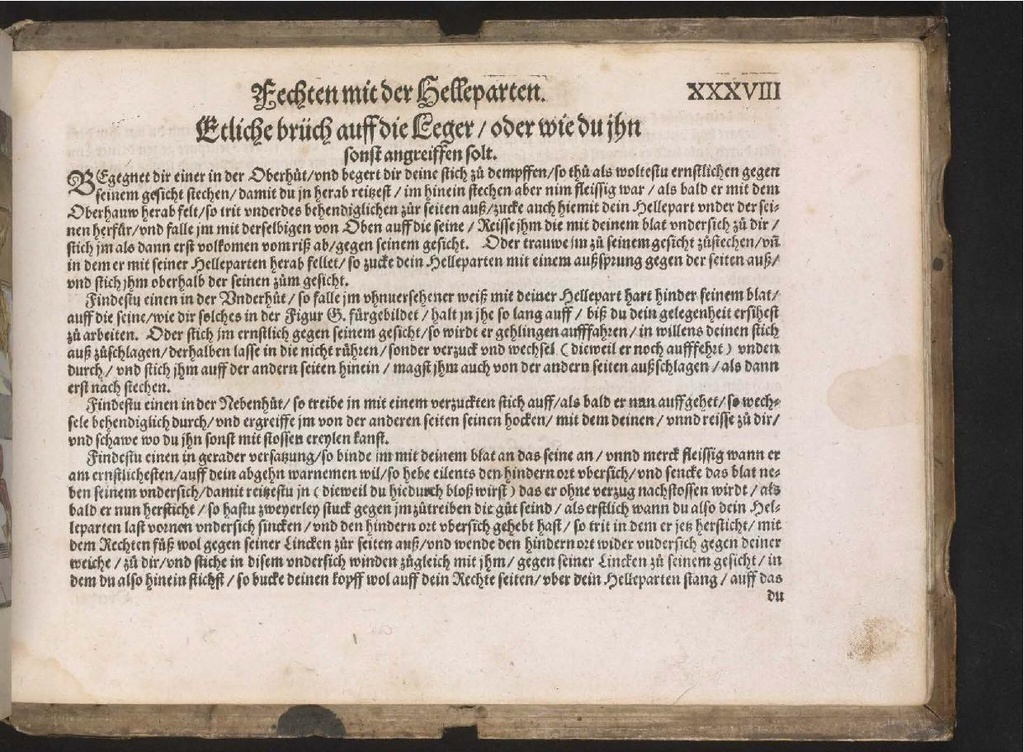 Fechten mit der Helleparten. XXXVIII
Etliche brüch auff die Leger / oder wie du jhn
sonst angreiffen solt.
BEgegnet dir einer in der Oberhůt/vnd begert dir deine stich zů dempffen/so thů als woltestu ernstlichen gegen
seinem gesicht stechen/damit du jn herab reitzest / im hinein stechen aber nim fleissig war / als bald er mit dem
Oberhauw herab felt/so trit vnderdes behendiglichen zůr seiten auß/zucke auch hiemit dein Hellepart vnder der sei-
nen herfür/vnd falle jm mit derselbigen von Oben auff die seine / Reisse jhm die mit deinem blat vndersich zů dir /
stich jm als dann erst volkomen vom riß ab/gegen seinem gesicht. Oder trauwe im zů seinem gesicht zůstechen/vñ
in dem er mit seiner Helleparten herab fellet/so zucke dein Helleparten mit einem außsprung gegen der seiten auß/
vnd stich jhm oberhalb der seinen zům gesicht.
Findestu einen in der Vnderhůt / so falle jm vhnuersehener weiß mit deiner Hellepart hart hinder seinem blat/
auff die seine/wie dir solches in der Figur G. fürgebildet / halt jn jhe so lang auff / biß du dein gelegenheit ersihest
zů arbeiten. Oder stich jm ernstlich gegen seinem gesicht/so wirdt er gehlingen aufffahren/in willens deinen stich
auß zůschlagen/derhalben lasse in die nicht rühren/sonder verzuck vnd wechsel (dieweil er noch aufffehrt) vnden
durch/vnd stich jhm auff der andern seiten hinein / magst jhm auch von der andern seiten außschlagen/als dann
erst nach stechen.
Findestu einen in der Nebenhůt/so treibe in mit einem verzuckten stich auff/als bald er nun auffgehet/so wech-
sele behendiglich durch/vnd ergreiffe jm von der anderen seiten seinen hocken/mit dem deinen / vnnd reisse zů dir/
vnd schawe wo du jhn sonst mit stossen ereylen kanst.
Findestu einen in gerader versatzung/so binde im mit deinem blat an das seine an / vnnd merck fleissig wann er
am ernstlichesten/auff dein abgehn warnemen wil/so hebe eilents den hindern ort vbersich/vnd sencke das blat ne-
ben seinem vndersich/damit reitzestu jn (dieweil du hiedurch bloß wirst) das er ohne verzug nachstossen wirdt / als
bald er nun hersticht / so hastu zweyerley stuck gegen jm zůtreiben die gůt seind / als erstlich wann du also dein Hel-
leparten last vornen vndersich sincken / vnd den hindern ort vbersich gehebt hast / so trit in dem er jetz hersticht / mit
dem Rechten fůß wol gegen seiner Lincken zůr seiten auß/vnd wende den hindern ort wider vndersich gegen deiner
weiche / zů dir/vnd stiche in disem vndersich winden zůgleich mit jhm / gegen seiner Lincken zů seinem gesicht / in
dem du also hinein stichst / so bucke deinen kopff wol auff dein Rechte seiten/vber dein Helleparten stang / auff das
du